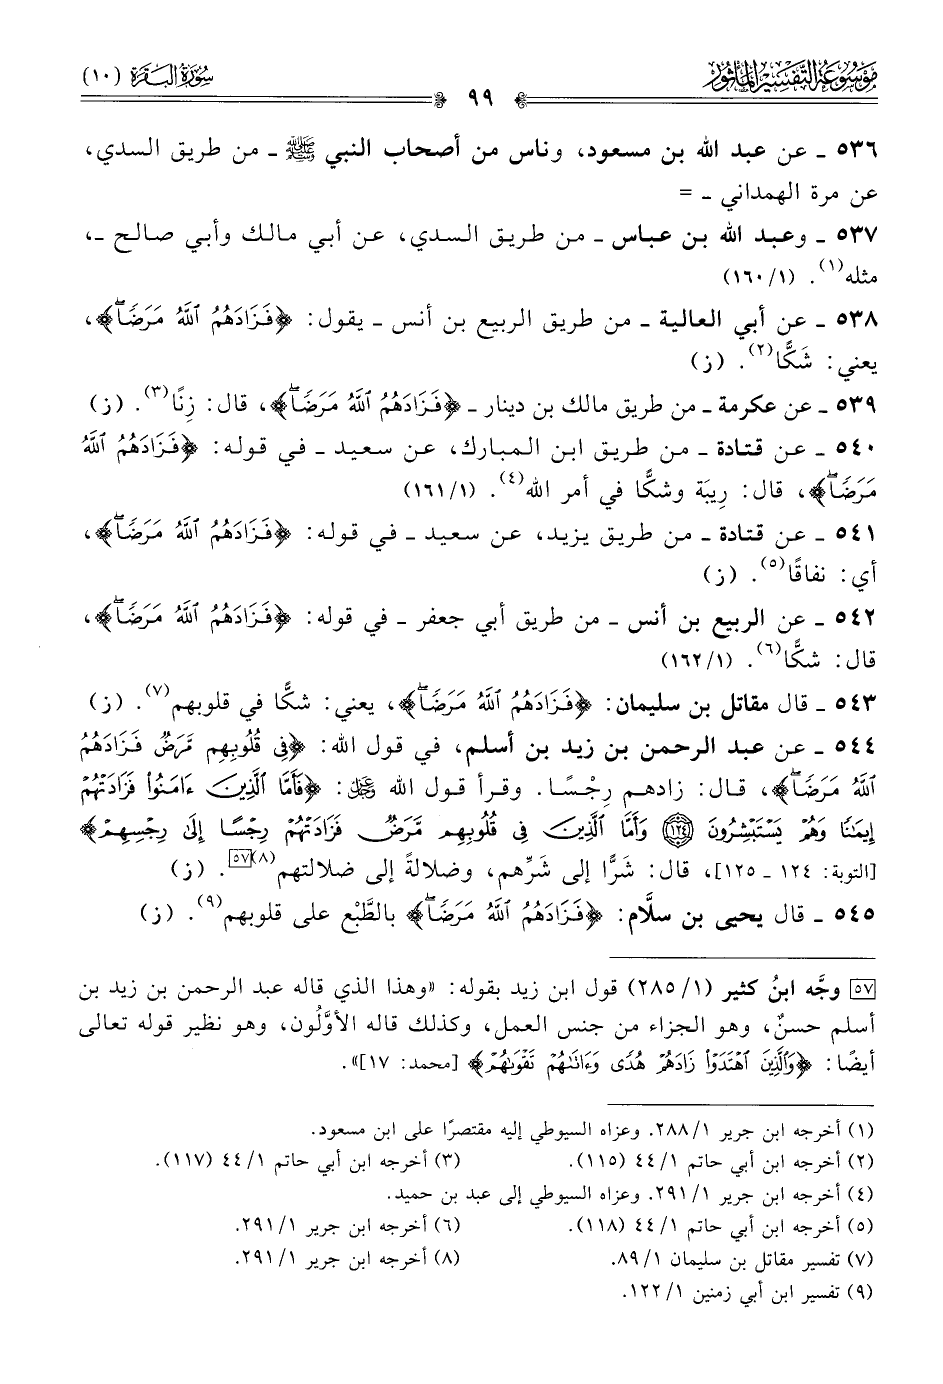 موسوعة التفسير المأثور
سورة البقرة (١٠)
٩٩
٥٣٦ ـ عن عبد الله بن مسعود، وناس من أصحاب النبي ﷺ ـ من طريق السدي،
عن مرة الهمداني ـ =
٥٣٧ ـ وعبد الله بن عباس ـ من طريق السدي، عن أبي مالك وأبي صالح ـ،
مثله(١). (١/ ١٦٠)
٥٣٨ ـ عن أبي العالية ـ من طريق الربيع بن أنس ـ يقول: ﴿فَزَادَهُمُ ٱللَّهُ مَرَضٗاۖ﴾،
يعني: شَكًّا(٢). (ز)
٥٣٩ ـ عن عكرمة ـ من طريق مالك بن دينار ـ ﴿فَزَادَهُمُ ٱللَّهُ مَرَضٗاۖ﴾، قال: زِنًا(٣). (ز)
٥٤٠ ـ عن قتادة ـ من طريق ابن المبارك، عن سعيد ـ في قوله: ﴿فَزَادَهُمُ ٱللَّهُ
مَرَضٗاۖ﴾، قال: رِيبَة وشكًّا في أمر الله(٤). (١/ ١٦١)
٥٤١ ـ عن قتادة ـ من طريق يزيد، عن سعيد ـ في قوله: ﴿فَزَادَهُمُ ٱللَّهُ مَرَضٗاۖ﴾،
أي: نفاقًا(٥). (ز)
٥٤٢ ـ عن الربيع بن أنس ـ من طريق أبي جعفر ـ في قوله: ﴿فَزَادَهُمُ ٱللَّهُ مَرَضٗاۖ﴾،
قال: شكًّا(٦). (١/ ١٦٢)
٥٤٣ ـ قال مقاتل بن سليمان: ﴿فَزَادَهُمُ ٱللَّهُ مَرَضٗاۖ﴾، يعني: شكًّا في قلوبهم(٧). (ز)
٥٤٤ ـ عن عبد الرحمن بن زيد بن أسلم، في قول الله: ﴿فِي قُلُوبِهِم مَّرَضٞ فَزَادَهُمُ
ٱللَّهُ مَرَضٗاۖ﴾، قال: زادهم رِجْسًا. وقرأ قول الله ﷿: ﴿فَأَمَّا ٱلَّذِينَ ءَامَنُواْ فَزَادَتۡهُمۡ
إِيمَٰنٗا وَهُمۡ يَسۡتَبۡشِرُونَ ١٢٤ وَأَمَّا ٱلَّذِينَ فِي قُلُوبِهِم مَّرَضٞ فَزَادَتۡهُمۡ رِجۡسًا إِلَىٰ رِجۡسِهِمۡ﴾
[التوبة: ١٢٤ ـ ١٢٥]، قال: شَرًّا إلى شَرِّهم، وضلالةً إلى ضلالتهم(٨)[٥٧]. (ز)
٥٤٥ ـ قال يحيى بن سلَّام: ﴿فَزَادَهُمُ ٱللَّهُ مَرَضٗاۖ﴾ بالطَّبْع على قلوبهم(٩). (ز)
[٥٧] وجَّه ابنُ كثير (١/ ٢٨٥) قول ابن زيد بقوله: «وهذا الذي قاله عبد الرحمن بن زيد بن
أسلم حسنٌ، وهو الجزاء من جنس العمل، وكذلك قاله الأوَّلُون، وهو نظير قوله تعالى
أيضًا: ﴿وَٱلَّذِينَ ٱهۡتَدَوۡاْ زَادَهُمۡ هُدٗى وَءَاتَىٰهُمۡ تَقۡوَىٰهُمۡ﴾ [محمد: ١٧]».
(١) أخرجه ابن جرير ١/ ٢٨٨. وعزاه السيوطي إليه مقتصرًا على ابن مسعود.
(٢) أخرجه ابن أبي حاتم ١/ ٤٤ (١١٥). (٣) أخرجه ابن أبي حاتم ١/ ٤٤ (١١٧).
(٤) أخرجه ابن جرير ١/ ٢٩١. وعزاه السيوطي إلى عبد بن حميد.
(٥) أخرجه ابن أبي حاتم ١/ ٤٤ (١١٨). (٦) أخرجه ابن جرير ١/ ٢٩١.
(٧) تفسير مقاتل بن سليمان ١/ ٨٩. (٨) أخرجه ابن جرير ١/ ٢٩١.
(٩) تفسير ابن أبي زمنين ١/ ١٢٢.